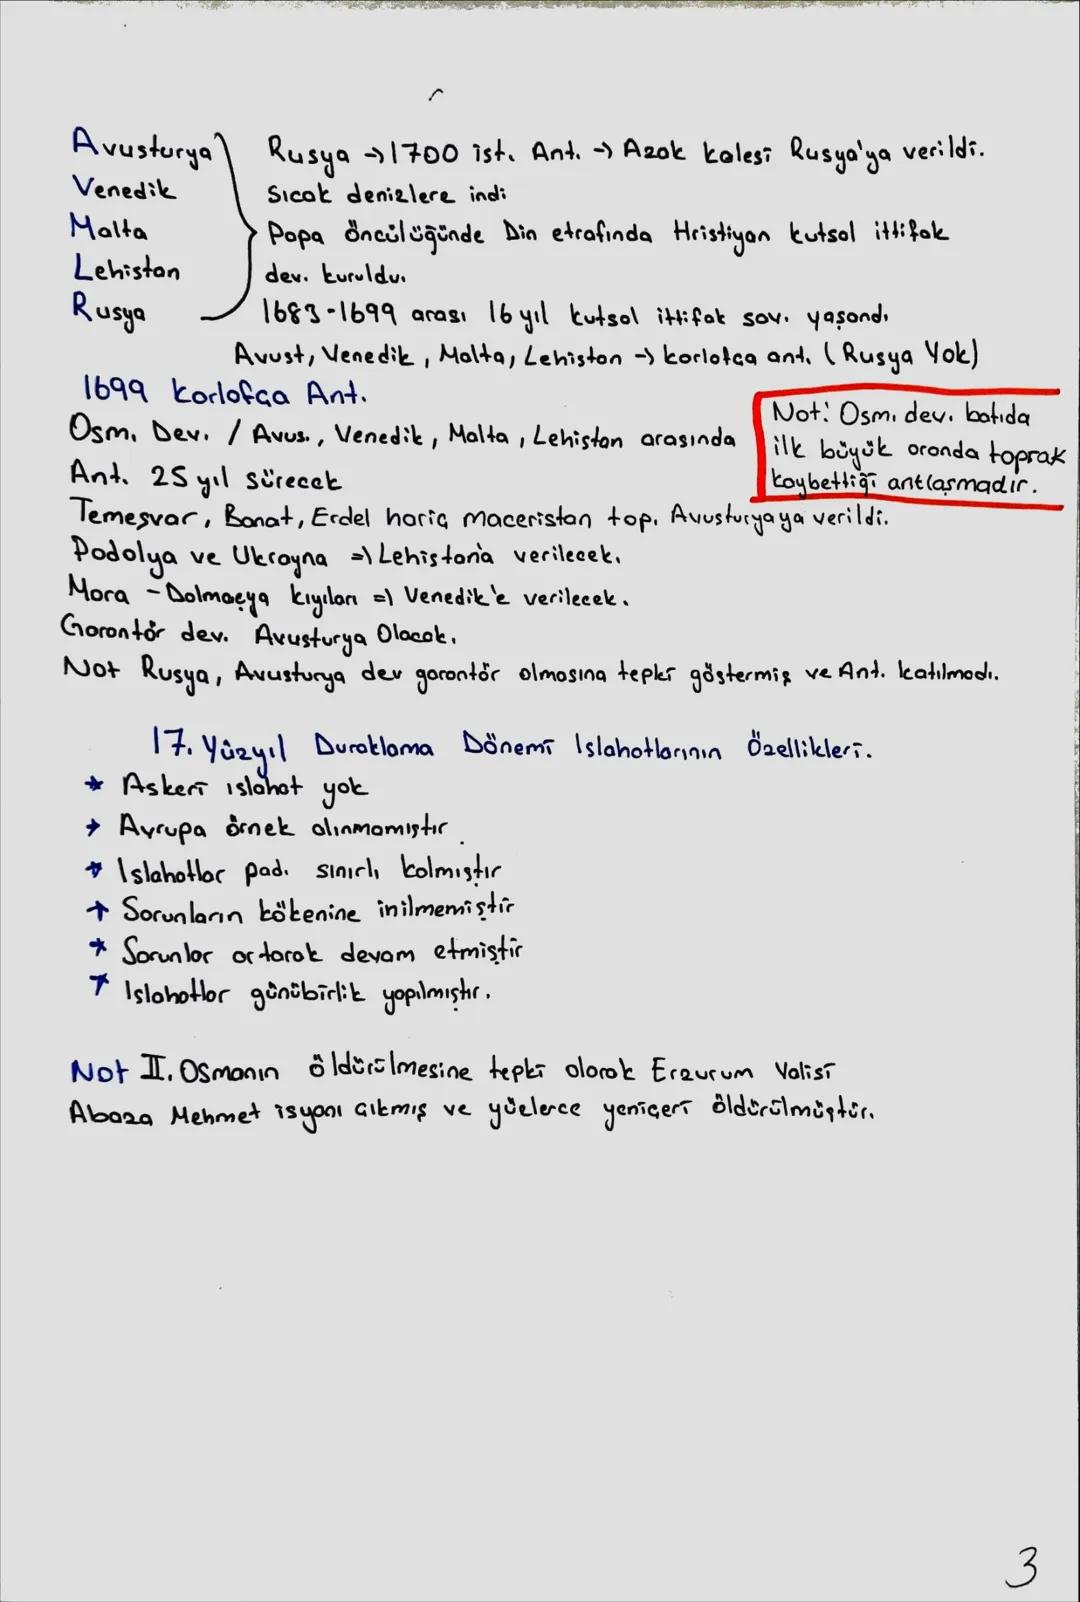 Avusturya
Venedik
Malta
Lehistan
Rusya
Rusya → 1700 ist. Ant. → Azak kalesi Rusya'ya verildi.
Sıcak denizlere indi
Papa öncülüğünde Din etrafında Hristiyan kutsal ittifak
dev. kuruldu.
1683-1699 arası 16 yıl kutsal ittifak sav. yaşandı
Avust, Venedik, Malta, Lehistan → karlofça ant. (Rusya Yok)
1699 Karlofça Ant.
Osm. Dev. / Avus., Venedik, Malta, Lehistan arasında
Not: Osm. dev. batıda
ilk büyük oranda toprak
kaybettiği antlaşmadır.
Ant. 25 yıl sürecek
Temeşvar, Banat, Erdel hariç maceristan top. Avusturyaya verildi.
Podolya ve Ukrayna => Lehistan'a verilecek.
Mora - Dalmaçya kıyıları => Venedik'e verilecek.
Garantör dev. Avusturya Olacak.
Not Rusya, Avusturya dev garantör olmasına tepki göstermiş ve Ant. katılmadı.
17. Yüzyıl Duraklama Dönemi Islahatlarının Özellikleri.
* Askeri ıslahat yok
* Avrupa örnek alınmamıştır
* Islahatlar pad. sınırlı kalmıştır
* Sorunların kökenine inilmemiştir
* Sorunlar artarak devam etmiştir
* Islahatlar günübirlik yapılmıştır.
Not II. Osmanın öldürülmesine tepki olarak Erzurum Valisi
Abaza Mehmet isyanı çıkmış ve yüzlerce yeniçeri öldürülmüştür.
3